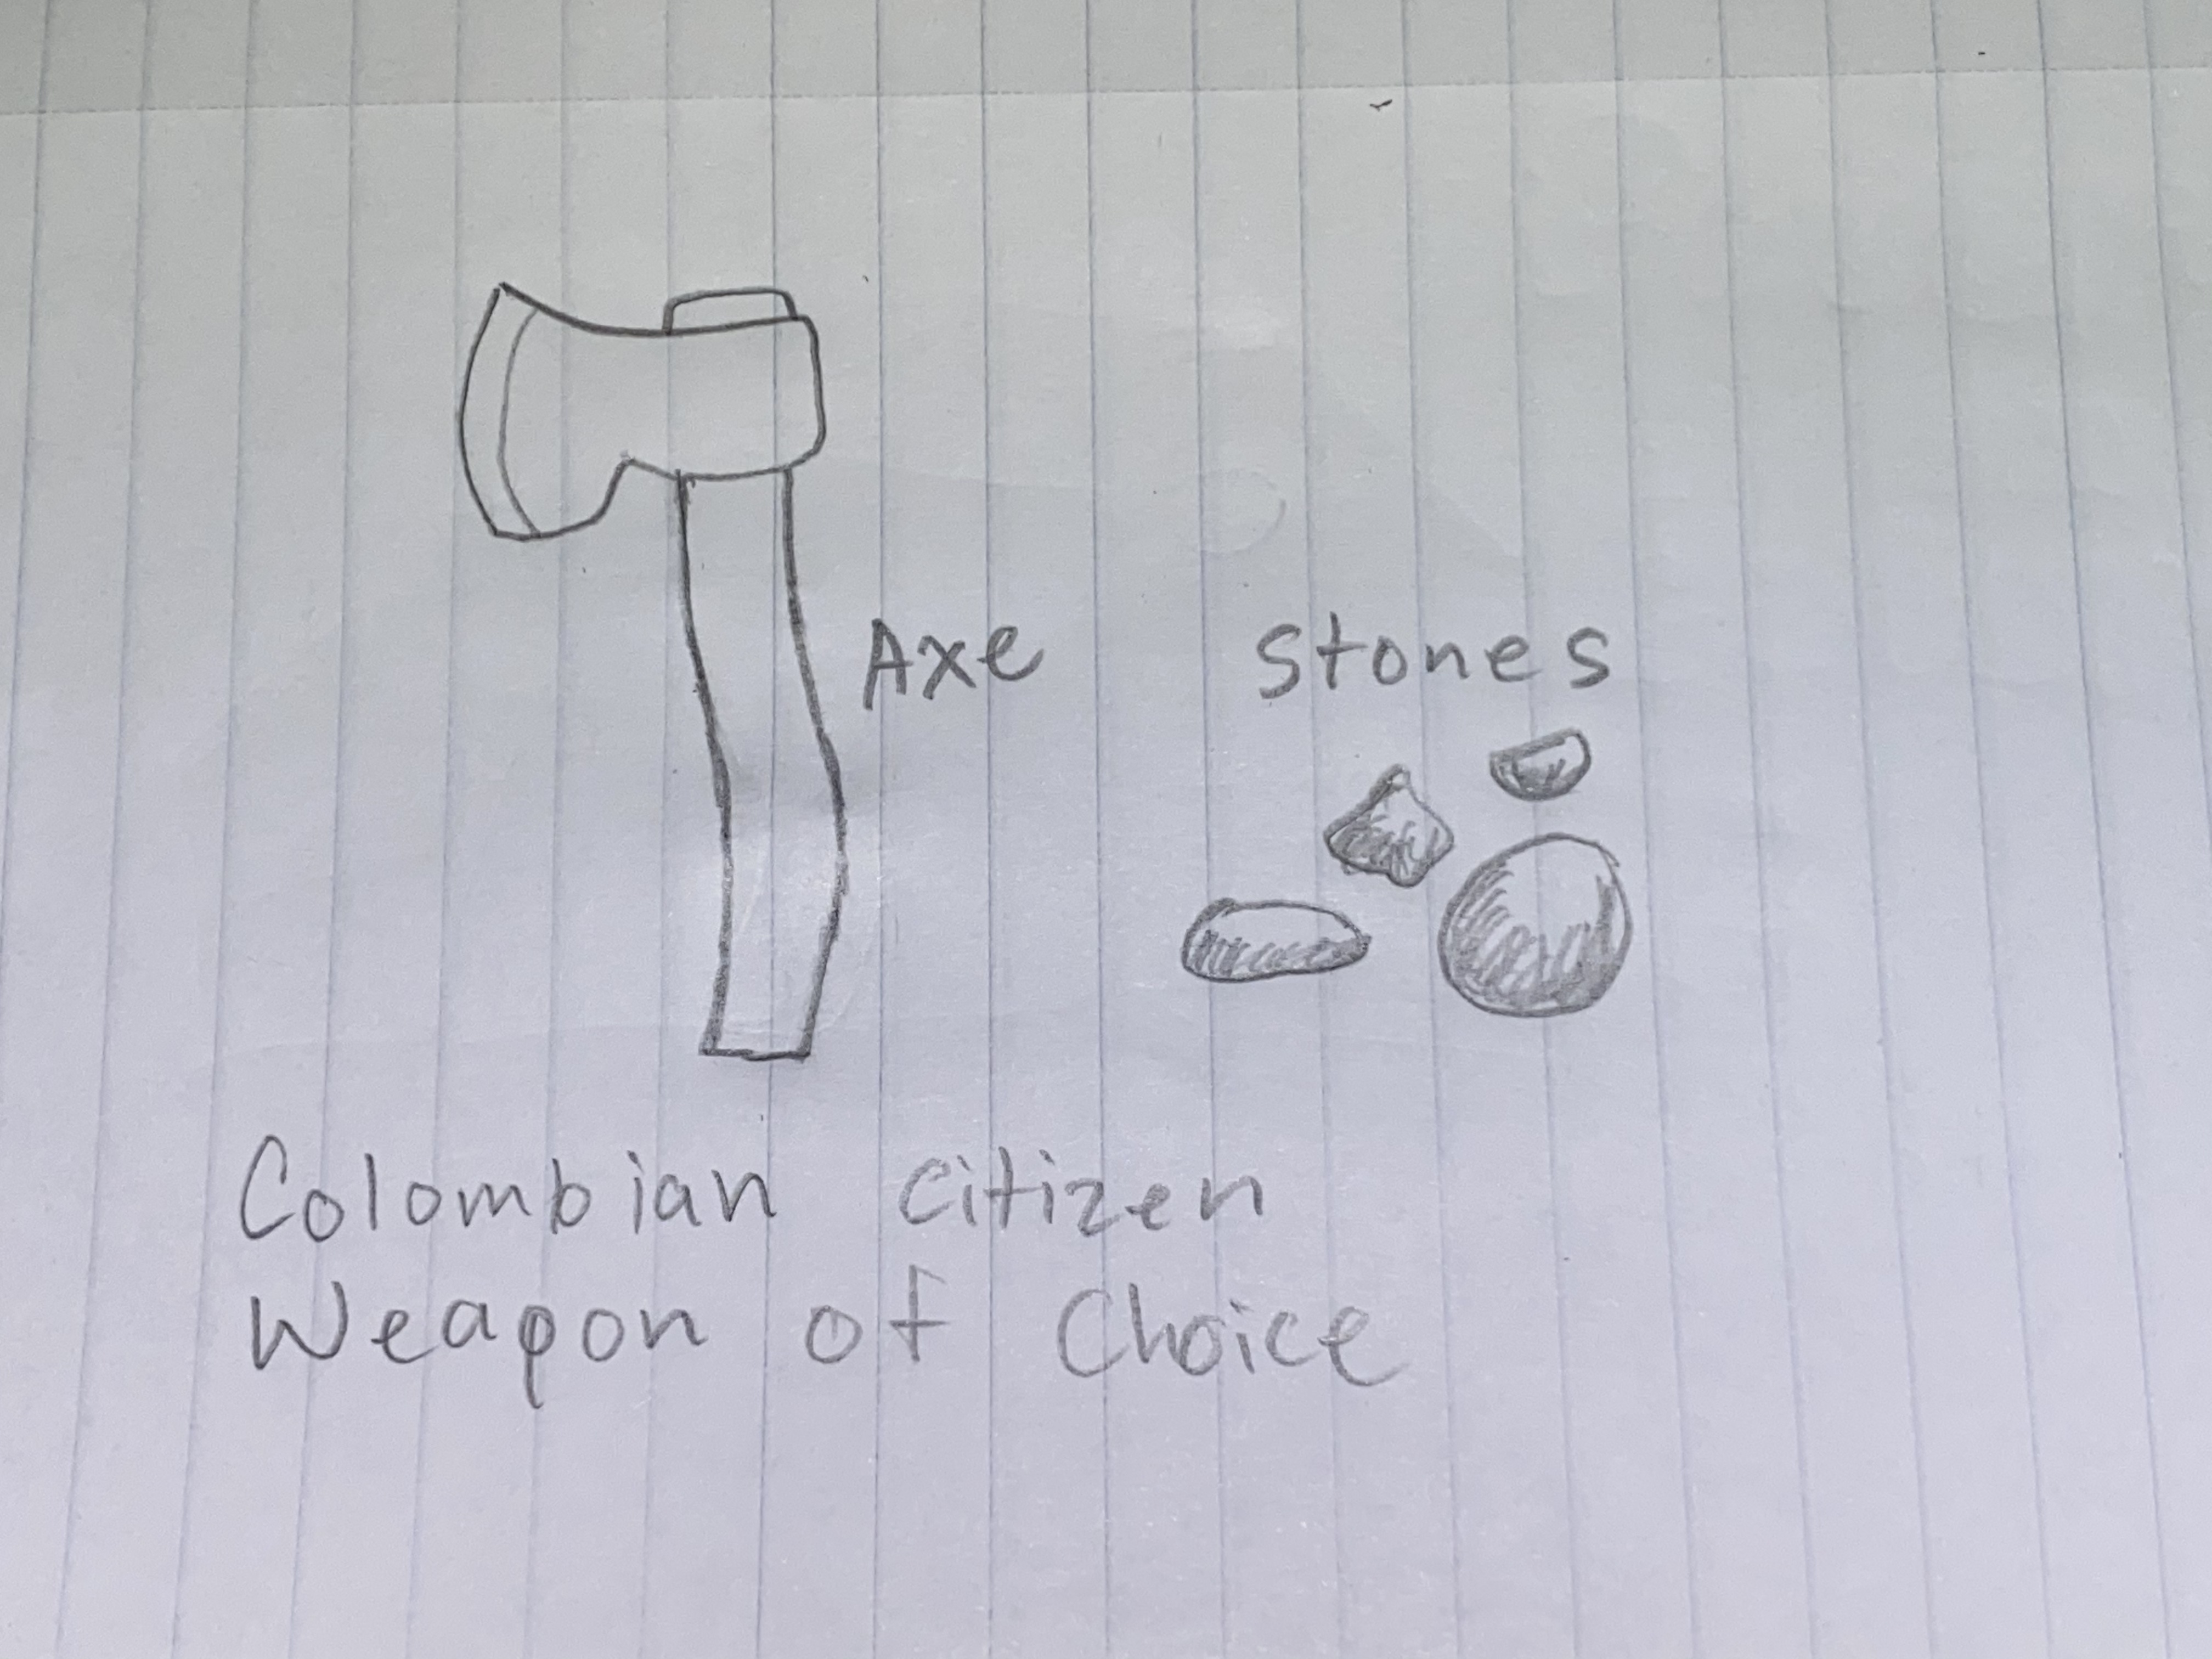 Axe
Stones
Colombian Citizen
Weapon of Choice